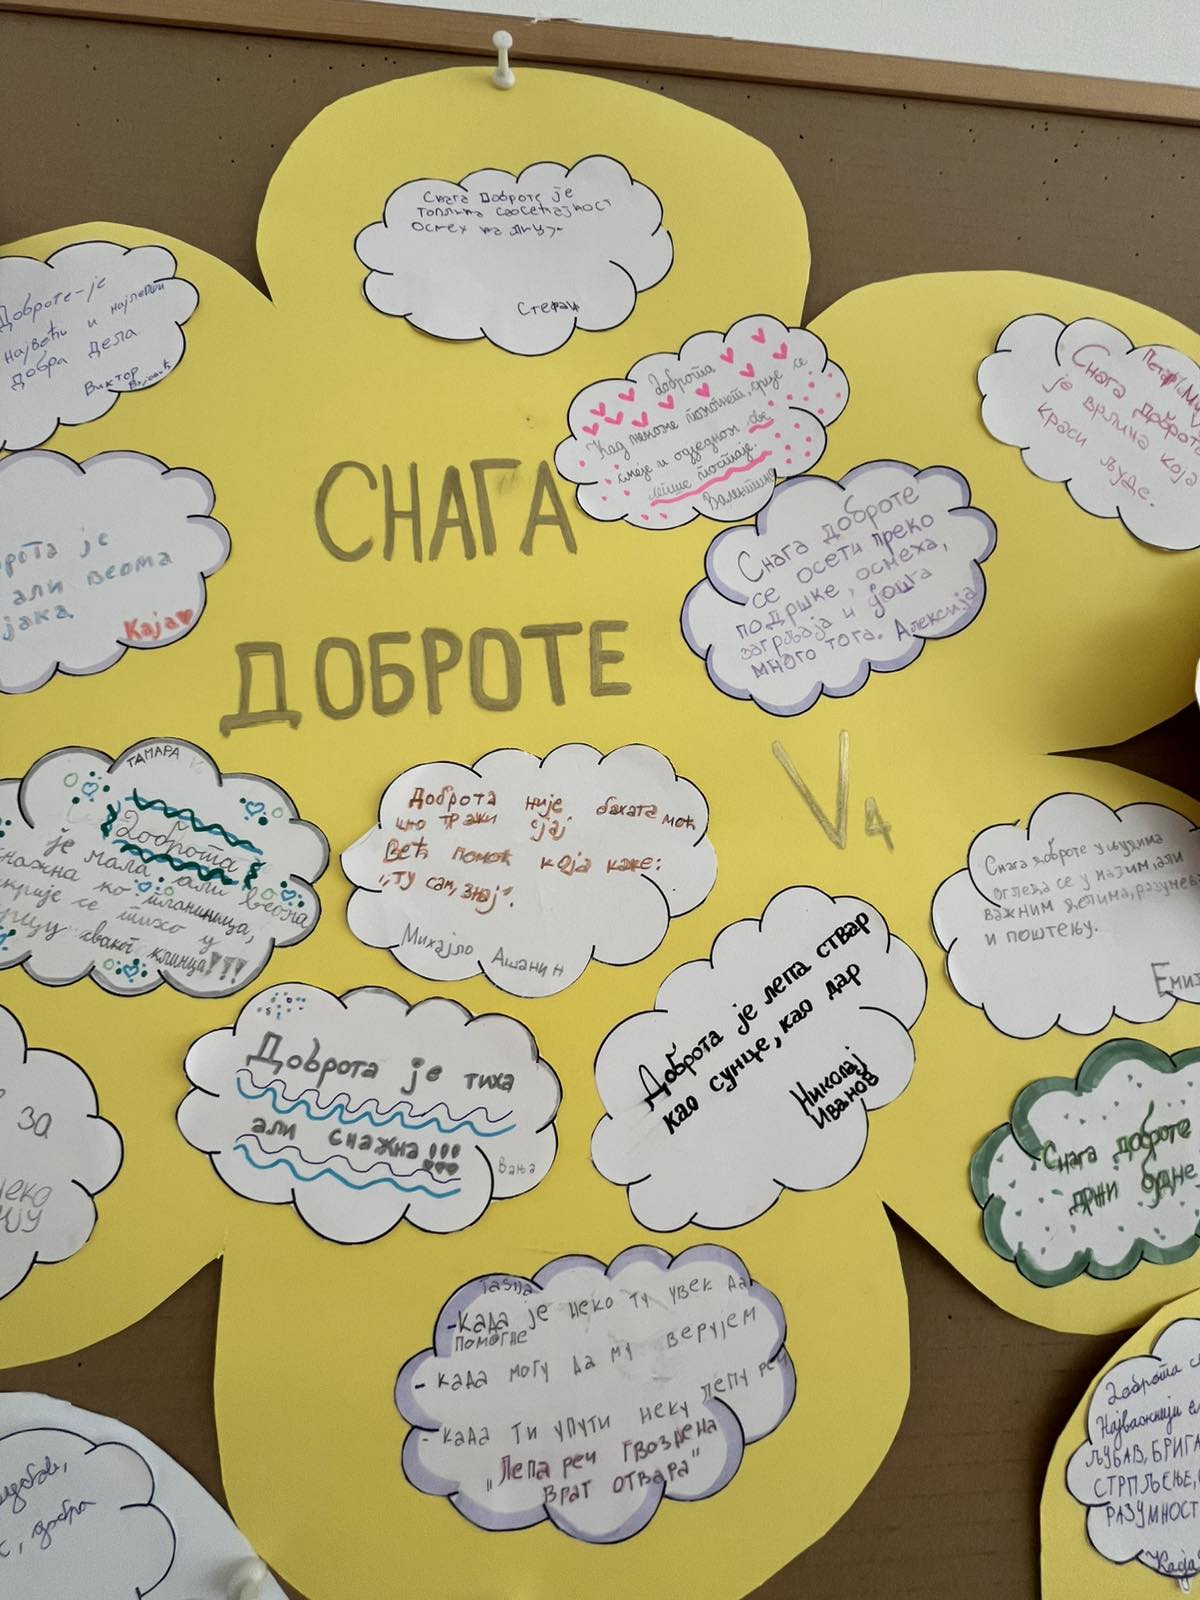 Снага Доброте је
топлина саосећајност
осмех на лицу
Стефан
Доброте-је
највећи и најлепши
добра дела
Виктор
доброта
Кад неко
смеје и одједном све
лепше постаје.
Валентина
Снага доброте
је врлина која
краси
људе.
СНАГА
ДОБРОТЕ
V4
је
али веома
јака
Каја
Снага доброте
се осети преко
подршке, осмеха,
загрљаја и још
много тога. Алексија
ТАМАРА
Доброта
је мала али веома
снажна ко планиница,
скрије се тихо у
срцу сваког клинца!!!
Доброта није бахата моћ
што тражи сјај
Већ помоћ која каже:
„ту сам, знај".
Михајло Ашанин
Снага доброте у људима
огледа се у малим, али
важним делима,
и поштењу.
Доброта је лепа ствар
као сунце, као дар
Николај
Иванов
Доброта је тиха
али снажна!!!
Вања
за
неко
Снага доброте
држи
-када је неко ту увек да
помогне
- када могу да му верујем
- када ти упути неку лепу реч
„Лепа реч гвоздена
врат отвара"
Доброта
Најважнији
ЉУБАВ, БРИГА
СТРПЉЕЊЕ,
добра